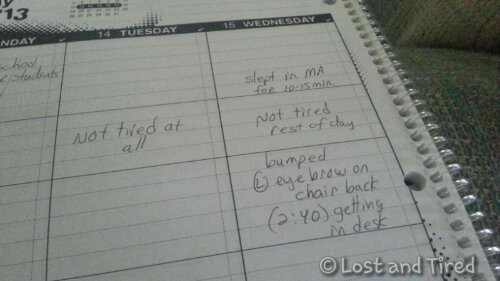 '13
NDAY
14 TUESDAY
15 WEDNESDAY
school
students
slept in MA
for 10-15min.
Not tired at
all
Not tired
rest of day
bumped
(L) eyebrow on
chair back
(2:40) getting
in desk
© Lost and Tired